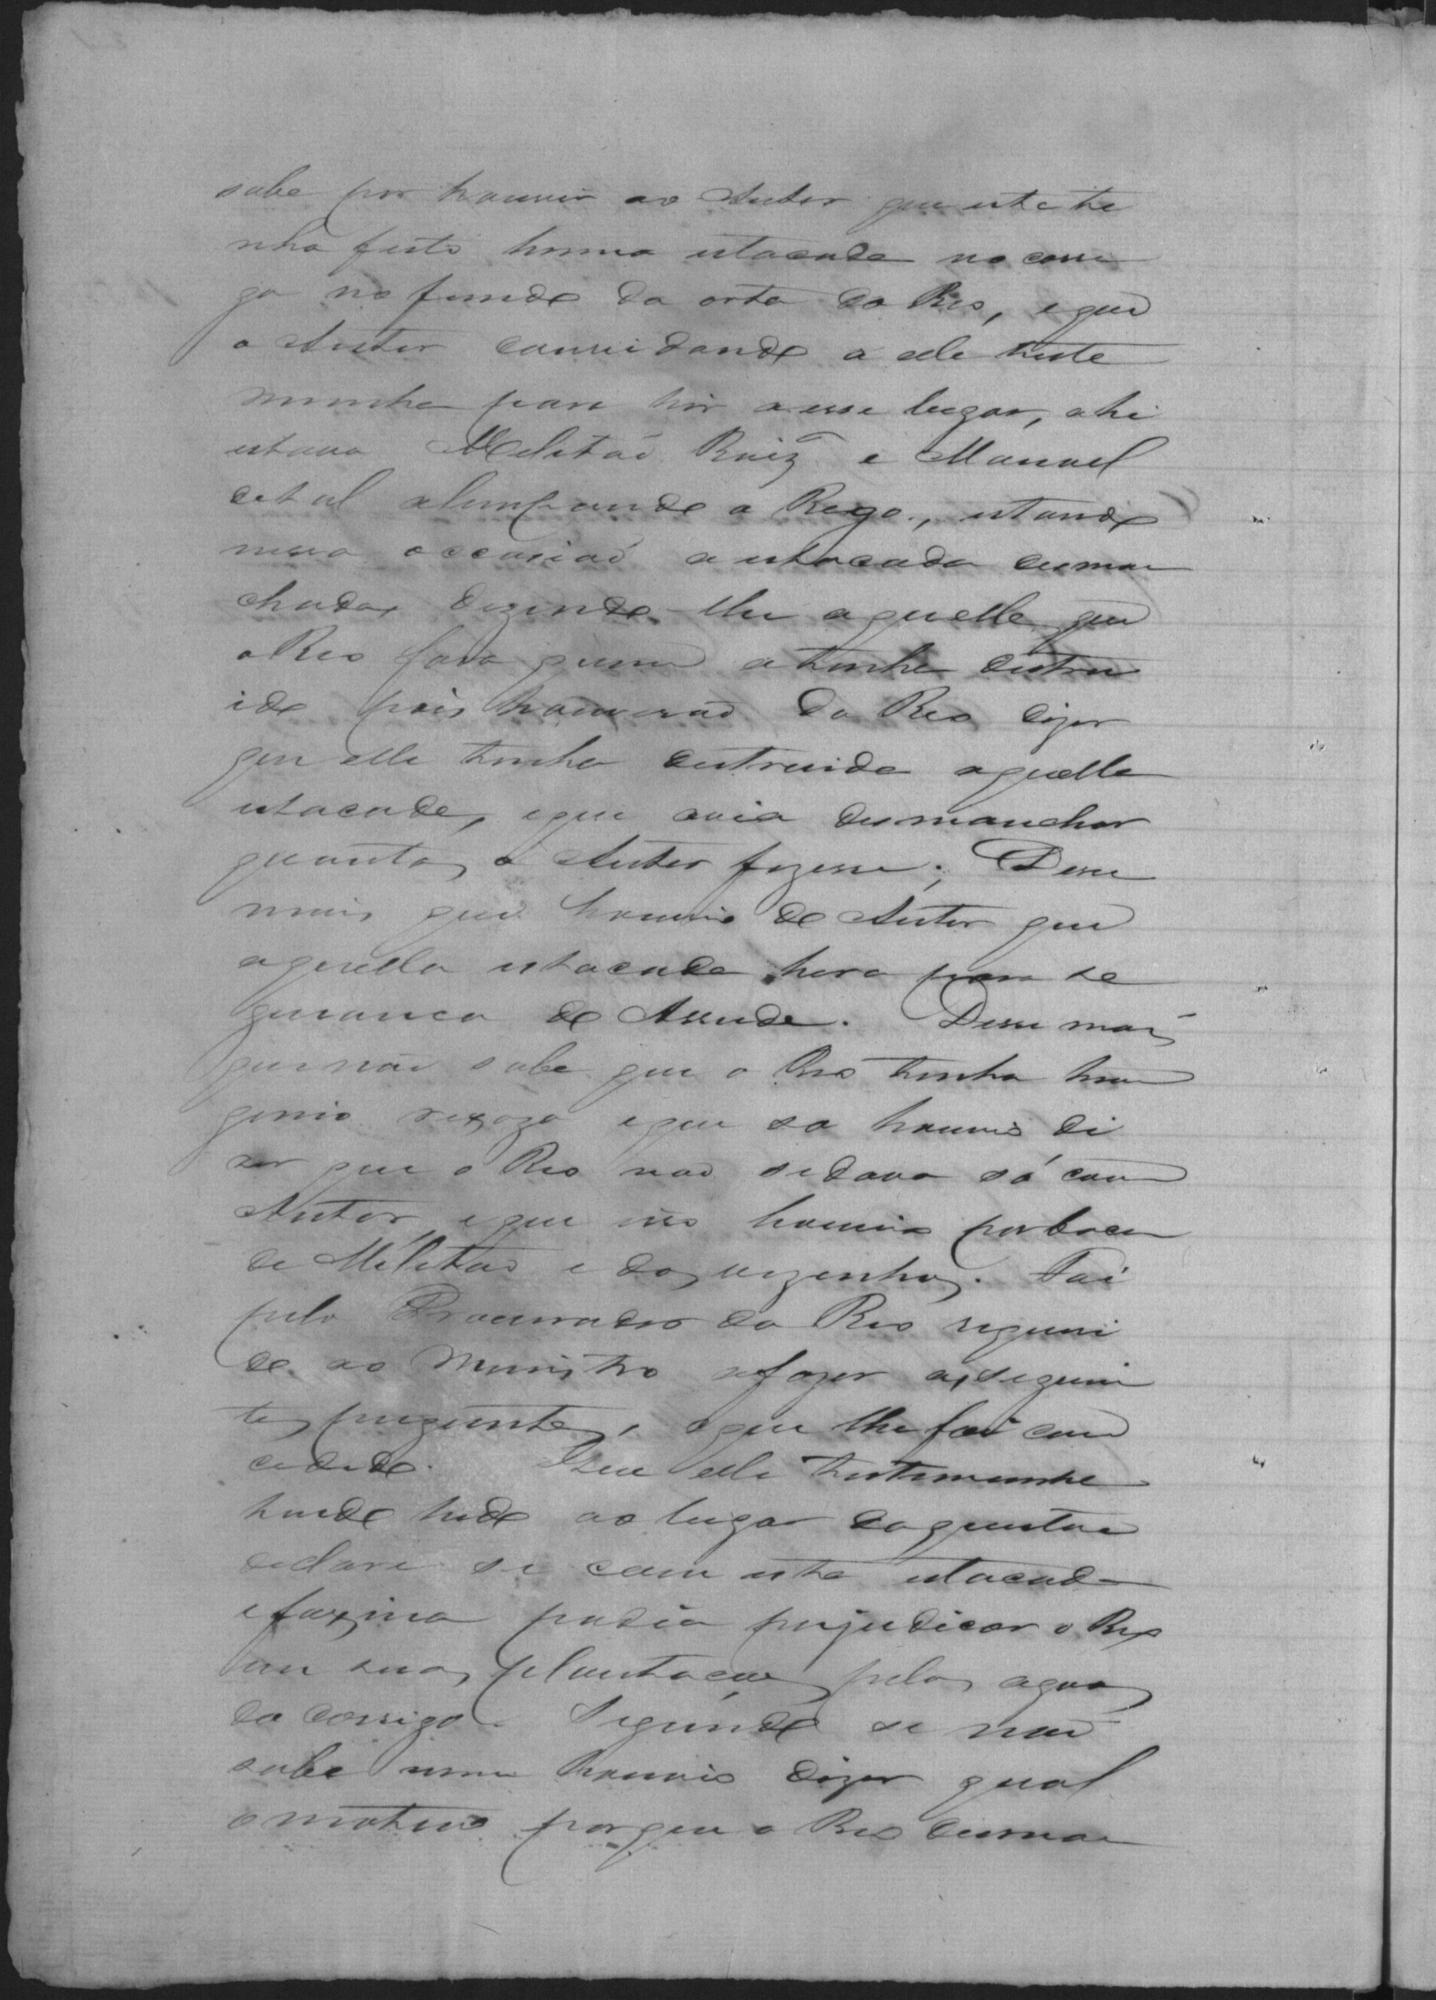 sabe por houvir ao Autor que este ti
nha feito huma estacada no corre
go no fundo da orta do Reo, e que
o Autor convidando a elle teste
munha para hir a esse lugar, ahi
estava Melitaõ Ruiz e Manoel
alimpando o Rego, estando
nessa occasiaõ a estacada desman
chada, dizendo-lhe aquelle que
o Reo fora quem a tinha destru
ido pois houviraõ do Reo dizer
que elle tinha destruido aquella
estacada, e que avia desmanchar
quantas o Autor fizesse; Disse
mais que houvio do Autor que
aquella estacada hera para se
gurança do Assude. Disse mais
que naõ sabe que o Reo tenha hum
genio rixozo e que só houvio di
zer que o Reo naõ se dava só com
Autor, e que isso houvio por boca
de Melitaõ e dos vezinhos. Foi
pelo Procurador do Reo requeri
do ao Ministro fazer as seguin
tes preguntas, o que lhe foi con
cedido. Que elle testemunha
tendo hido ao lugar da questaõ
declare se com esta estacada
e faxina podia prejudicar o Reo
em suas plantaçoes pelas agoas
do corrigo. Segundo se naõ
sabe nem houvio dizer qual
o motivo porque o Reo desman